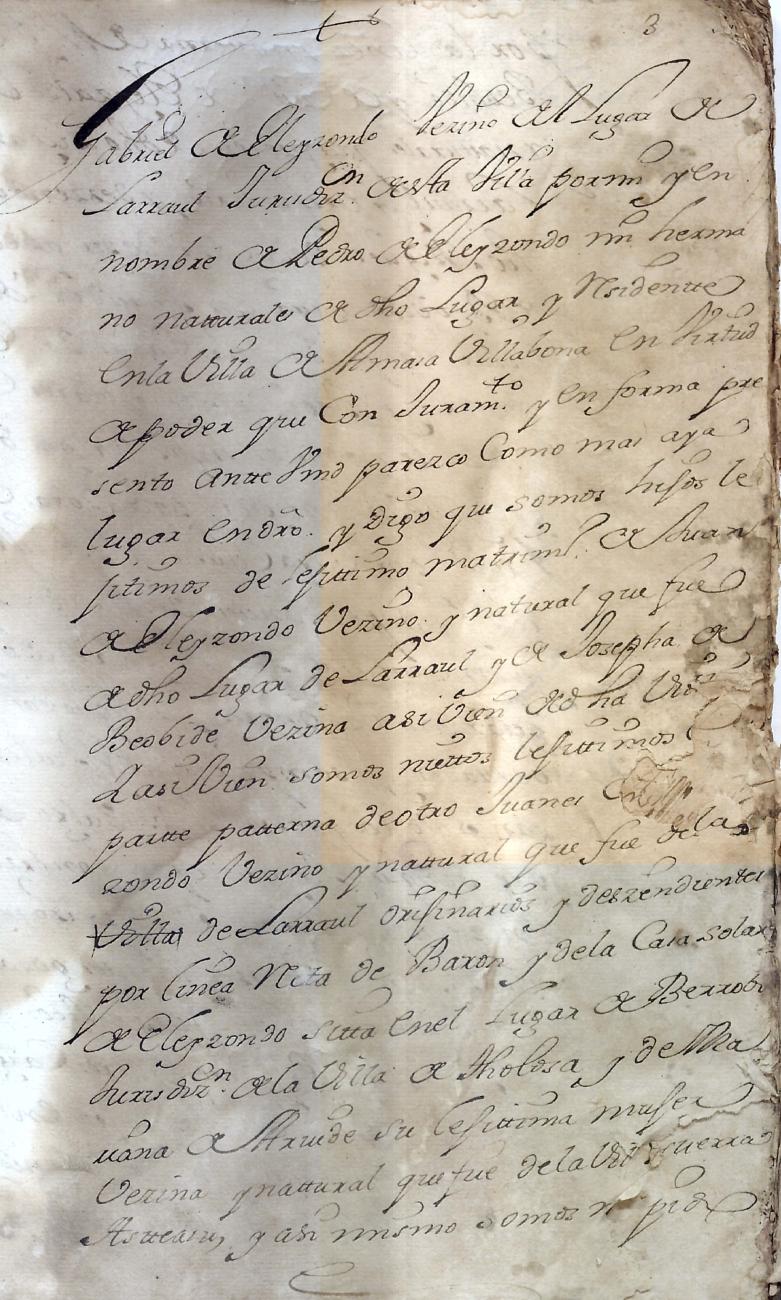 3
Gabriel de Eleyzondo Vezino del Lugar de
Larraul Jurisdizn. desta Villa por mi y en
nombre de Pedro de Eleyzondo mi herma
no natturales de dho Lugar y Residentte
en la Villa de Amasa Villabona en Virtud
de poder que Con Juramto. y en forma pre
sento antte Vmd parezco Como mas aya
lugar en dro. y Digo que somos hijos le
jitimos de lejittimo matriml. de Juan
de Eleyzondo Vezino. y natural que fue
de dho Lugar de Larraul y de Josepha de
Beobide Vezina asi Vien de dha
Y asi Vien somos niettos lejittimos
partte patterna de otro Juanes
zondo Vezino y nattural que fue de la
Villa de Larraul orijinarios y deszendientes
por linea Recta de Baron y de la Casa solar
de Eleyzondo sitta en el Lugar de Berrobi
Jurisdizn. de la Villa de Tholosa y de Ma
riana de su lejittima mujer
Vezina y nattural que fue de la
Astteasu, y asi mismo somos